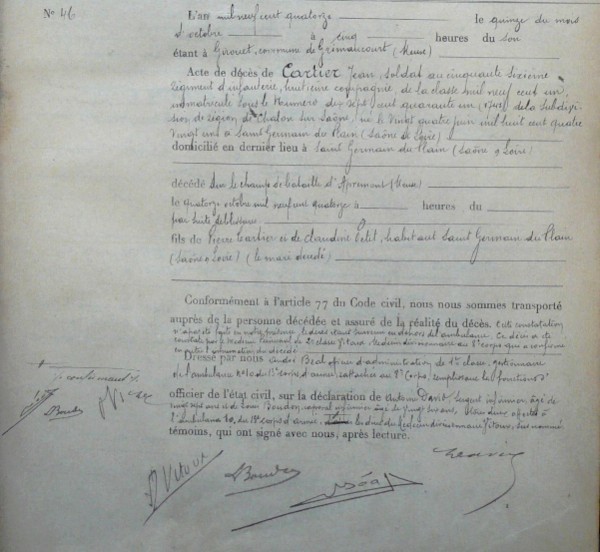 No 46
L'an mil neuf cent quatorze le quinze du mois
d'octobre à cinq heures du soir
étant à Girouet, commune de Grimaucourt (Meuse)
Acte de décès de Cartier Jean, soldat au cinquante sixième
régiment d'infanterie, huitième compagnie, de la classe mil neuf cent un
immatriculé sous le numéro sept cent quarante un (741) de la Subdivi
sion de région de Chalon sur Saône, né le vingt quatre juin mil huit cent quatre
vingt un à Saint Germain du Plain (Saône & Loire)
domicilié en dernier lieu à Saint Germain du Plain (Saône & Loire)
décédé sur le champ de bataille d'Apremont (Meuse)
le quatorze octobre mil neuf cent quatorze à heures du
par suite de blessures
fils de Pierre Cartier et de Claudine Petit, habitant Saint Germain du Plain
(Saône & Loire) (le mari décédé)
Conformément à l'article 77 du Code civil, nous nous sommes transporté
auprès de la personne décédée et assuré de la réalité du décès. Cette constatation
n'a pas été faite en notre présence, le décès étant survenu en dehors de l'ambulance. Ce décès a été
constaté par le Médecin de 2e classe Vitoux, Médecin divisionnaire au 8e corps qui a confirmé
l'inhumation du décédé.
Dressé par nous André Béal officier d'administration de 1ère classe, gestionnaire
de l'ambulance No 10 du 13e corps d'armée, rattachée au 8e Corps, remplissant les fonctions d'
officier de l'état civil, sur la déclaration de Antoine David, Sergent infirmier, âgé de
vingt sept ans et de Louis Boudon, caporal infirmier âgé de vingt six ans, tous deux affectés à
l'ambulance 10, du 13e corps d'armée, du médecin divisionnaire Vitoux, sus nommé
témoins, qui ont signé avec nous, après lecture.
Vitoux
Boudon
Béal
David